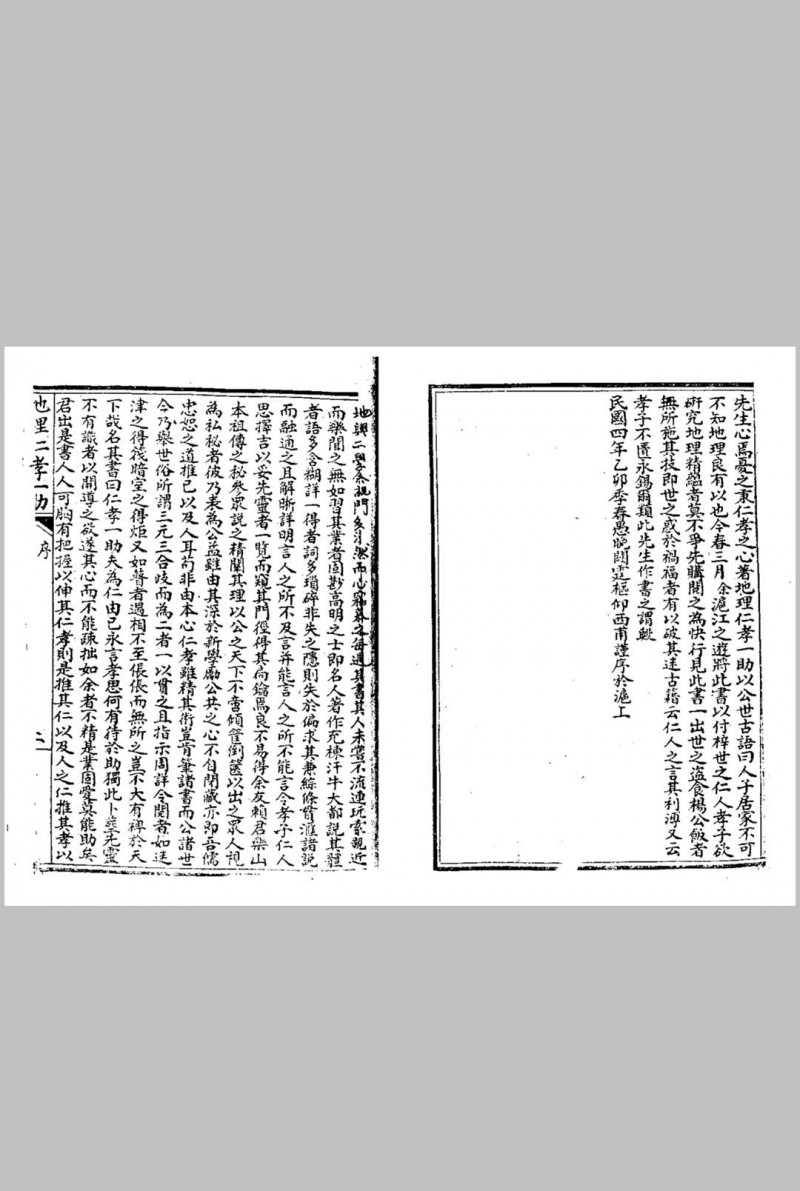 先生心焉憂之秉仁孝之心著地理仁孝一助以公世古語曰人子居家不可
不知地理良有以也今春三月余滬江之遊將此書以付梓世之仁人孝子欲
研究地理精蘊者莫不爭先購閱之為快行見此書一出世之盜食楊公飯者
無所施其技即世之惑於禍福者有以破其迷古籍云仁人之言其利溥又云
孝子不匱永錫爾類此先生作書之謂歟
民國四年乙卯季春愚晚闕霆樞仰西甫謹序於滬上
地輿二學余視門多汗然而心竊慕之每遇其書其人未嘗不流連玩索親近
而樂聞之無如習其業者固尠高明之士即名人著作充棟汗牛大都說其體
者語多含糊詳一得者詞多瑣碎非失之隱則失於偏求其兼綜條貫滙諸說
而融通之且解晰詳明言人之所不及言并能言人之所不能言令孝子仁人
思擇吉以妥先靈者一覽而窺其門徑得其肯綮為良不易得余友賴君樂山
本祖傳之秘參眾說之精闡其理以公之天下不啻傾筐倒篋以出之眾人視
為私秘者彼乃表為公益雖由其深於新學勵公共之心不自閉藏亦即吾儒
忠恕之道推己以及人耳苟非由本心仁孝雖精其術豈肯筆諸書而公諸世
今乃舉世俗所謂三元三合歧而為二者一以貫之且指示周詳令閱者如迷
津之得筏暗室之得炬又如瞽者遇相不至倀倀而無所之豈不大有裨於天
下哉名其書曰仁孝一助夫為仁由己永言孝思何有待於助獨此卜塋先靈
不有識者以開導之欲遂其心而不能疎拙如余者不精是業固愛莫能助矣
君出是書人人可胸有把握以伸其仁孝則是推其仁以及人之仁推其孝以
地里仁孝一助
序
二